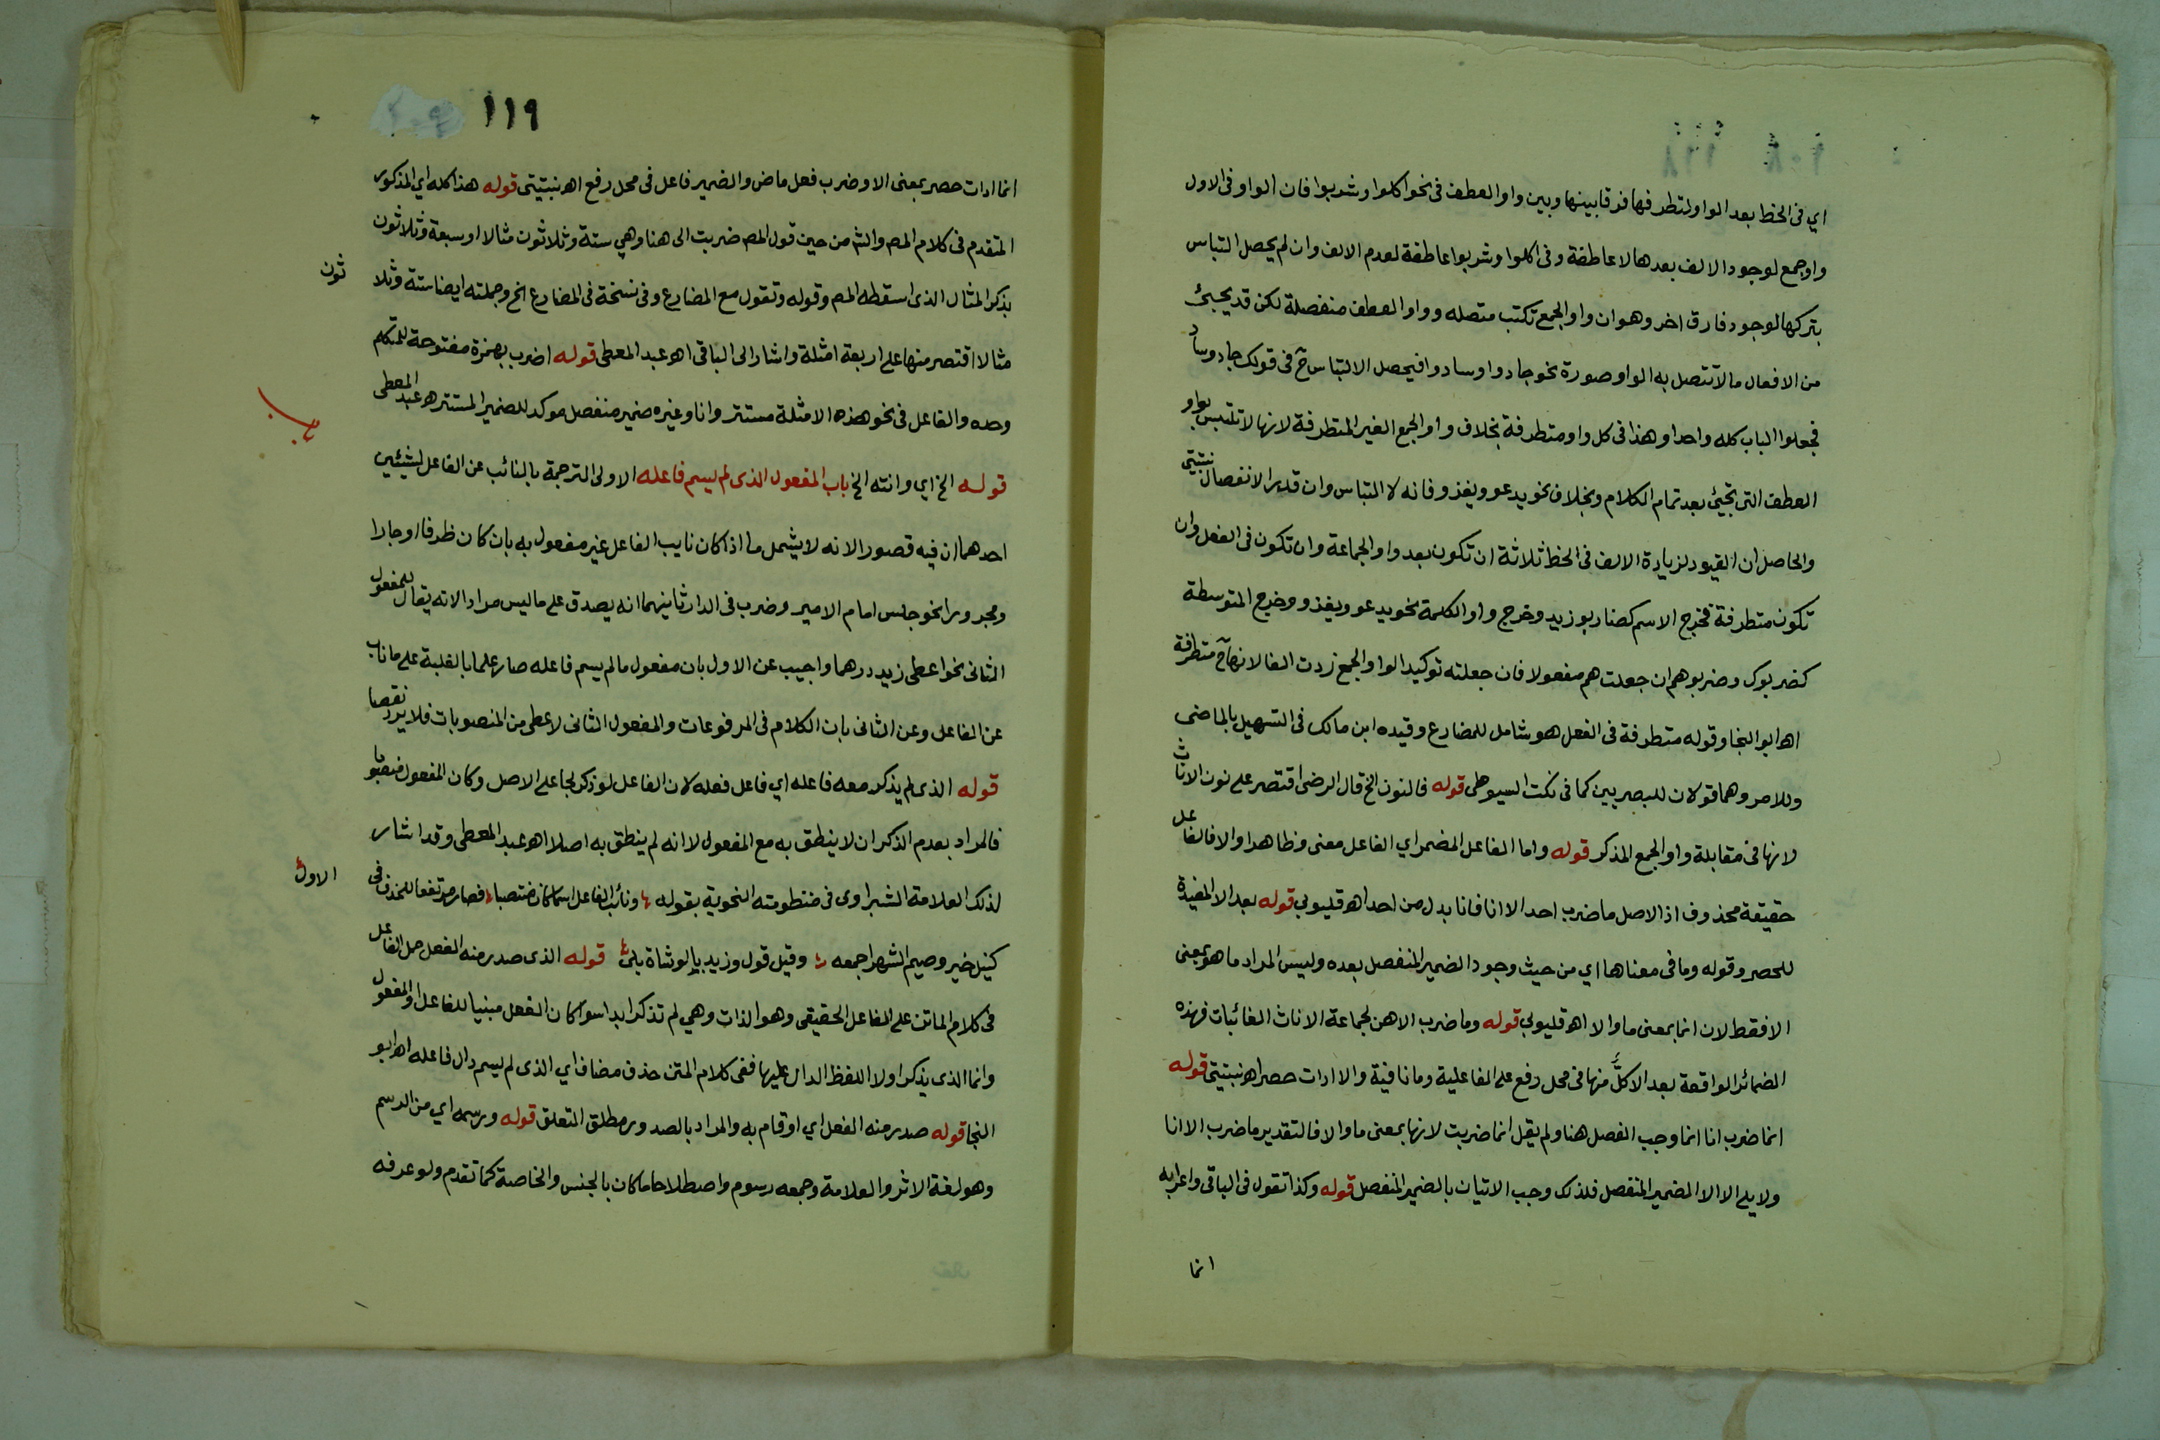 اي في الخط بعد الواو لتطرفها فرقا بينها وبين واو العطف في نحو اكلوا وشربوا فان الواو في الاول
واو جمع لوجود الالف بعدها لا عاطفة وفي اكلوا وشربوا عاطفة لعدم الالف وان لم يحصل التباس
بتركها لوجود فارق اخر وهو ان واو الجمع تكتب متصله وواو العطف منفصلة لكن قد يجيئ
من الافعال مالا تتصل به الواو صورة نحو جادوا وسادوا فيحصل الالتباس ح في قولك جاد وساد
فجعلوا الباب كله واحدا وهذا في كل واو متطرفة بخلاف واو الجمع الغير المتطرفة لانها لا تلتبس بواو
العطف التي تجيئ بعد تمام الكلام وبخلاف نحو يدعو ويغزو فانه لا التباس وان قدر الانفصال نبتيتي
والحاصل ان القيود لزيادة الالف في الخط ثلاثة ان تكون بعد واو الجماعة وان تكون في الفعل وان
تكون متطرفة فخرج الاسم كضاربو زيد وخرج واو الكلمة نحو يدعو ويغزو وخرج المتوسطة
كضربوك وضربوهم ان جعلت هم مفعولا فان جعلته توكيدا لواو الجمع زدت الفا لانها ح متطرفة
اه ابو النجا وقوله متطرفة في الفعل هو شامل للمضارع وقيده ابن مالك في التسهيل بالماضي
وللامر وهما قولان للبصريين كما في نكت السيوطي قوله فالنون الخ قال الرضي اقتصر على نون الاناث
لانها في مقابلة واو الجمع المذكر قوله واما الفاعل المضمر اي الفاعل معنى وظاهرا والا فالفاعل
حقيقة محذوف اذ الاصل ما ضرب احد الا انا فانا بدل من احد اه قليوبي قوله بعد الا المفيدة
للحصر وقوله وما في معناها اي من حيث وجود الضمير المنفصل بعده وليس المراد ما هو بمعنى
الا فقط لان انما بمعنى ما والا اه قليوبي قوله وما ضرب الا هن لجماعة الاناث الغائبات فهذه
الضمائر الواقعة بعد الا كلٌّ منها في محل رفع على الفاعلية وما نافية والا ادات حصر اه نبتيتي قوله
انما ضرب انا انما وجب الفصل هنا ولم يقل انما ضربت لانها بمعنى ما والا فالتقدير ما ضرب الا انا
ولا يلي الا الا المضمير المنفصل فلذلك وجب الاتيان بالضمير المنفصل قوله وكذا تقول في الباقي واعرابه
انما
١١٩
انما ادات حصر بمعنى الا وضرب فعل ماض والضمير فاعل في محل رفع اه نبتيتي قوله هذا كله اي المذكور
المتقدم في كلام المص والش من حين قول المص ضربت الى هنا وهي ستة وثلاثون مثالا او سبعة وثلاثون
بذكر المثال الذي اسقطه المص وقوله وتقول مع المضارع وفي نسخة في المضارع الخ وجملته ايضا ستة وثلا
ثون
مثالا اقتصر منها على اربعة امثلة واشار الى الباقي اه عبد المعطي قوله اضرب بهمزة مفتوحة للمتكلم
وحده والفاعل في نحو هذه الامثلة مستتر وانا وغيره ضمير منفصل موكد للضمير المستتر اه عبد المعطي
باب
قوله الخ اي وانته الخ باب المفعول الذي لم يسم فاعله الاولى الترجمة بالنائب عن الفاعل لشيئين
احدهما ان فيه قصورا لانه لا يشمل ما اذا كان نايب الفاعل غير مفعول به بان كان ظرفا او جارا
ومجرورا نحو جلس امام الامير وضرب في الدار ثانيهما انه يصدق على ما ليس مراد الانه يقال للمفعول
الثاني نحو اعطى زيد درهما واجيب عن الاول بان مفعول ما لم يسم فاعله صار علما بالغلبة على ما ناب
عن الفاعل وعن الثاني بان الكلام في المرفوعات والمفعول الثاني لاعطى من المنصوبات فلا يرد نقضا
قوله الذي لم يذكر معه فاعله اي فاعل فعله لان الفاعل لو ذكر لجا على الاصل وكان المفعول منصوبا
فالمراد بعدم الذكر ان لا ينطق به مع المفعول لا انه لم ينطق به اصلا اه عبد المعطي وقد اشار
لذلك العلامة الشبراوي في منظومته النحوية بقوله ونائب الفاعل اسما كان منتصبا فصار مرتفعا للحذف في
الاول
كنيل خير وصيم الشهر اجمعه وقيل قول وزيد بالوشاة بلي قوله الذي صدر منه الفعل حمل الفاعل
في كلام الماتن على الفاعل الحقيقي وهو الذات وهي لم تذكر ابدا سوا كان الفعل مبنيا للفاعل او المفعول
وانما الذي يذكر اولا اللفظ الدال عليها ففي كلام المتن حذف مضاف اي الذي لم يسم دال فاعله اه ابو
النجا قوله صدر منه الفعل اي او قام به والمراد بالصدور مطلق التعلق قوله ورسمه اي من الرسم
وهو لغة الاثر والعلامة وجمعه رسوم واصطلاحا ما كان بالجنس والخاصة كما تقدم ولو عرفه